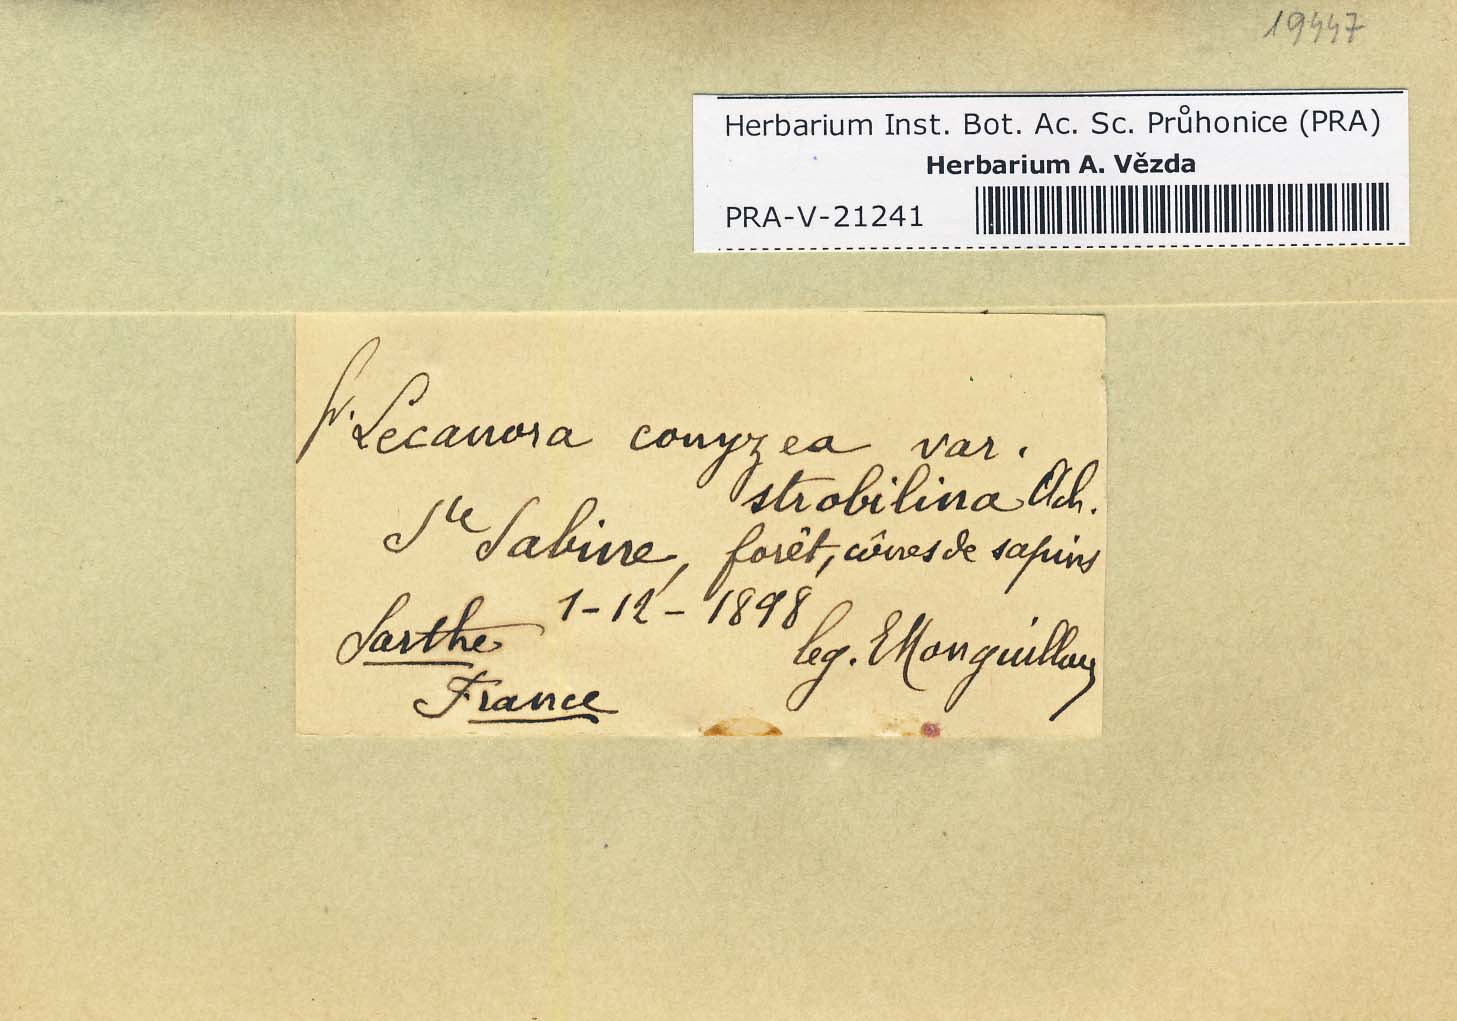 19447
Herbarium Inst. Bot. Ac. Sc. Průhonice (PRA)
Herbarium A. Vězda
PRA-V-21241
Lecanora conyzea var.
strobilina Ach.
Ste Sabine, forêt, cônes de sapins
1-12-1898
Sarthe
leg. E Monguillon
France